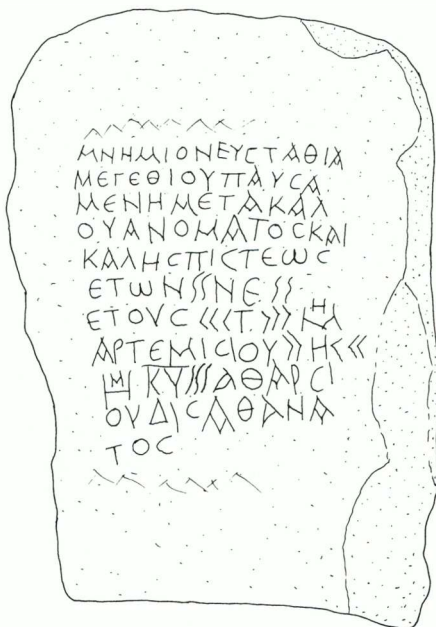 ΜΝΗΜΙΟΝΕΥϹΤΑΘΙΑ
ΜΕΓΕΘΙΟΥΠΑΥϹΑ
ΜΕΝΗΜΕΤΑΚΑΛ
ΟΥΑΝΟΜΑΤΟϹΚΑΙ
ΚΑΛΗϹΠΙϹΤΕωϹ
ΕΤωΝ∫∫ΝΕ∫∫
ΕΤΟΥϹ<<<Τ>>>
ΑΡΤΕΜΙϹΙΟΥ>>Η<<
ΚΥ∫∫∫ΑΘΑΡϹΙ
ΟΥΔΙϹΑΘΑΝΑ
ΤΟϹ